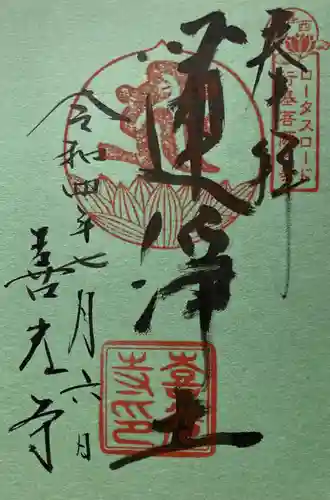 奉拝
西
ロータスロード
蓮浄土
令和四年七月六日
善光寺